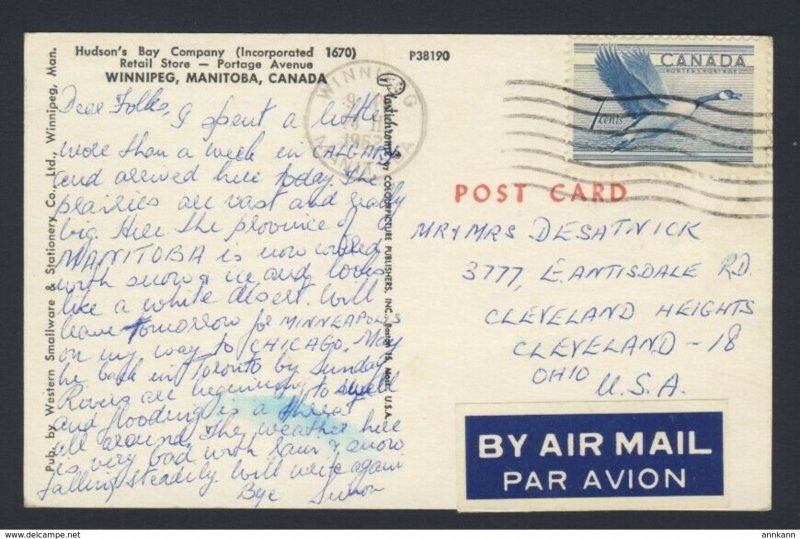 Hudson's Bay Company (Incorporated 1670)
Retail Store — Portage Avenue
WINNIPEG, MANITOBA, CANADA
P38190
Pub. by Western Smallware & Stationery Co., Ltd., Winnipeg, Man.
Dear Folks, I spent a little
more than a week in CALGARY
and arrived here today. The
prairies are vast and really
big Here the province of
MANITOBA is now covered
with snow & ice and looks
like a white desert. Will
leave Tomorrow for MINNEAPOLIS
on my way to CHICAGO. May
be back in Toronto by Sunday
Rivers are beginning to swell
and flooding is a threat
all around. The weather here
is very bad with rain & snow
falling steadily Will write again
Bye Simon
WINNIPEG
MANITOBA
Plastichrome® by COLOURPICTURE PUBLISHERS, INC., Boston 15, Mass., U.S.A.
CANADA
POSTES · POSTAGE
7 cents
POST CARD
MR Y MRS DESATNICK
3777, E. ANTISDALE RD.
CLEVELAND HEIGHTS
CLEVELAND - 18
OHIO
U.S.A.
BY AIR MAIL
PAR AVION
annkann